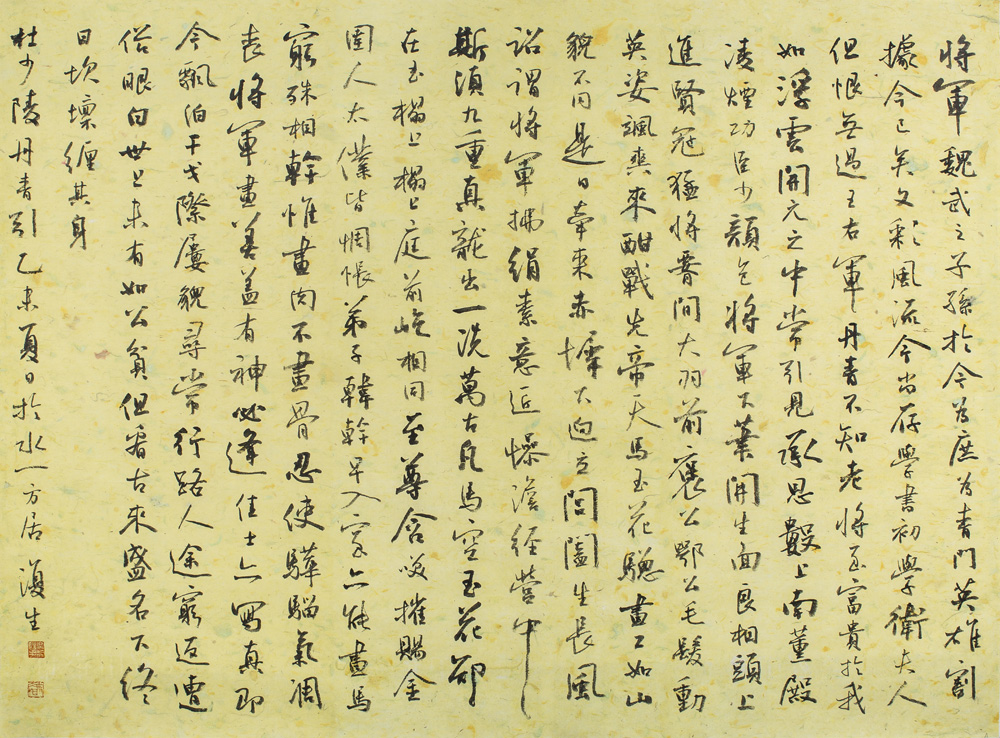 將軍魏武之子孫於今為庶為青門英雄割
據今已矣文彩風流今尚存學書初學衛夫人
但恨無過王右軍丹青不知老將至富貴於我
如浮雲開元之中常引見承恩數上南薰殿
凌煙功臣少顏色將軍下筆開生面良相頭上
進賢冠猛將腰間大羽箭褒公鄂公毛髮動
英姿颯爽來酣戰先帝天馬玉花驄畫工如山
貌不同是日牽來赤墀下迥立閶闔生長風
詔謂將軍拂絹素意匠慘澹經營中
斯須九重真龍出一洗萬古凡馬空玉花卻
在玉榻上榻上庭前屹相向至尊含笑催賜金
圉人太僕皆惆悵弟子韓幹早入室亦能畫馬
窮殊相幹惟畫肉不畫骨忍使驊騮氣凋
喪將軍畫善蓋有神必逢佳士亦寫真即
今飄泊干戈際屢貌尋常行路人途窮返遭
俗眼白世上未有如公貧但看古來盛名下終
日坎壈纏其身
杜少陵丹青引乙未夏日於水一方居 復生